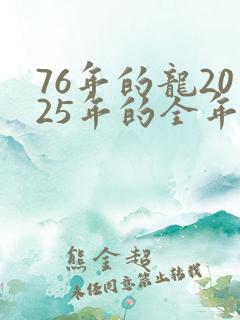 76年的龍20
25年的全年
熊金超
未经同意禁止转载